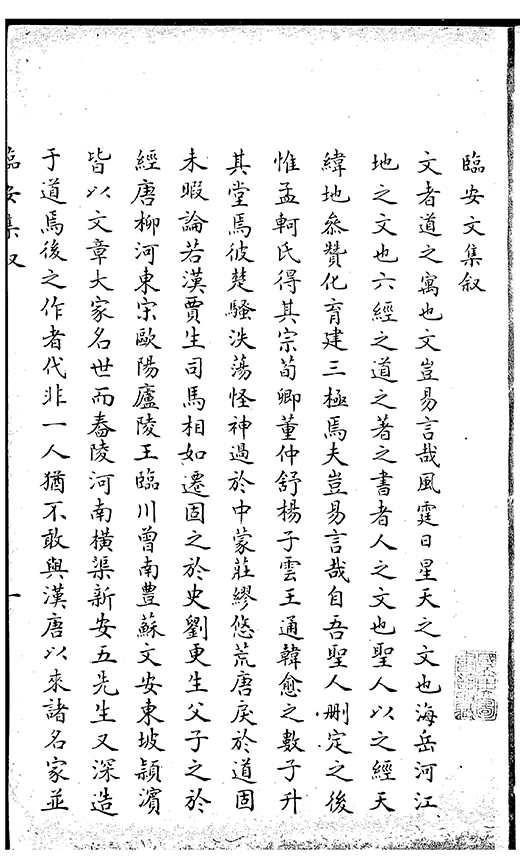 臨安文集叙
文者道之寓也文豈易言哉風霆日星天之文也海岳河江
地之文也六經之道之著之書者人之文也聖人以之經天
緯地叅贊化育建三極焉夫豈易言哉自吾聖人刪定之後
惟孟軻氏得其宗荀卿董仲舒楊子雲王通韓愈之數子升
其堂焉彼楚騷泆蕩怪神過於中蒙莊繆悠荒唐戾於道固
未暇論若漢賈生司馬相如遷固之於史劉更生父子之於
經唐柳河東宋歐陽廬陵王臨川曾南豊蘇文安東坡潁濱
皆以文章大家名世而舂陵河南横渠新安五先生又深造
于道焉後之作者代非一人猶不敢與漢唐以來諸名家並
臨安集叙
一